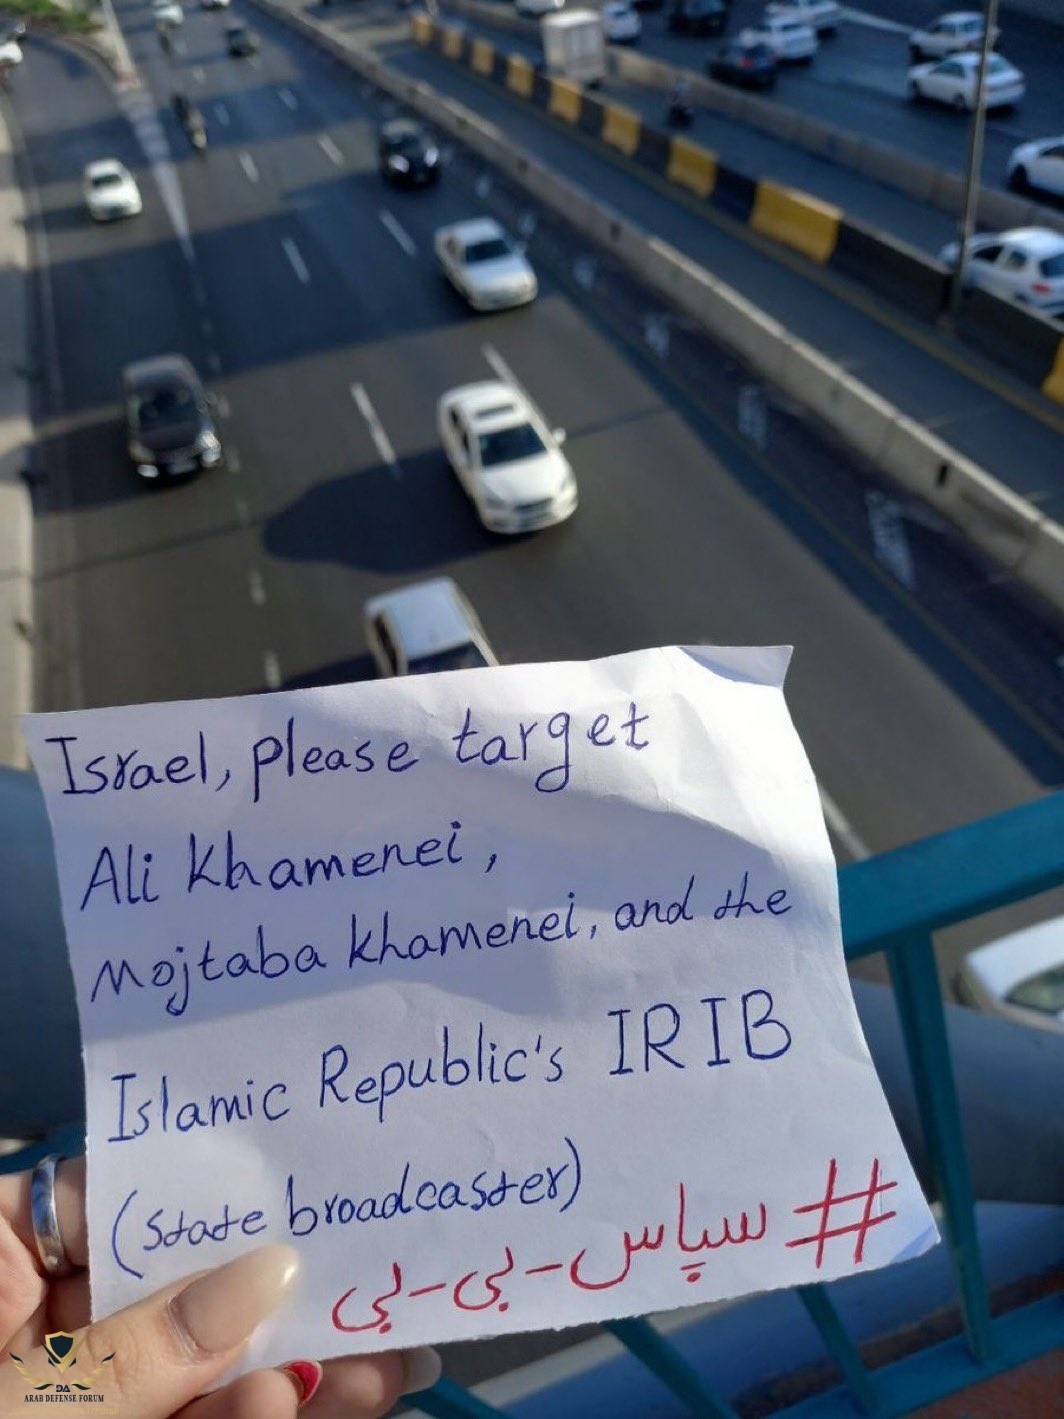 Israel, please target
Ali Khamenei,
Mojtaba Khamenei, and the
Islamic Republic's IRIB
(state broadcaster)
#سپاس-بی-بی
DA
ARAB DEFENSE FORUM